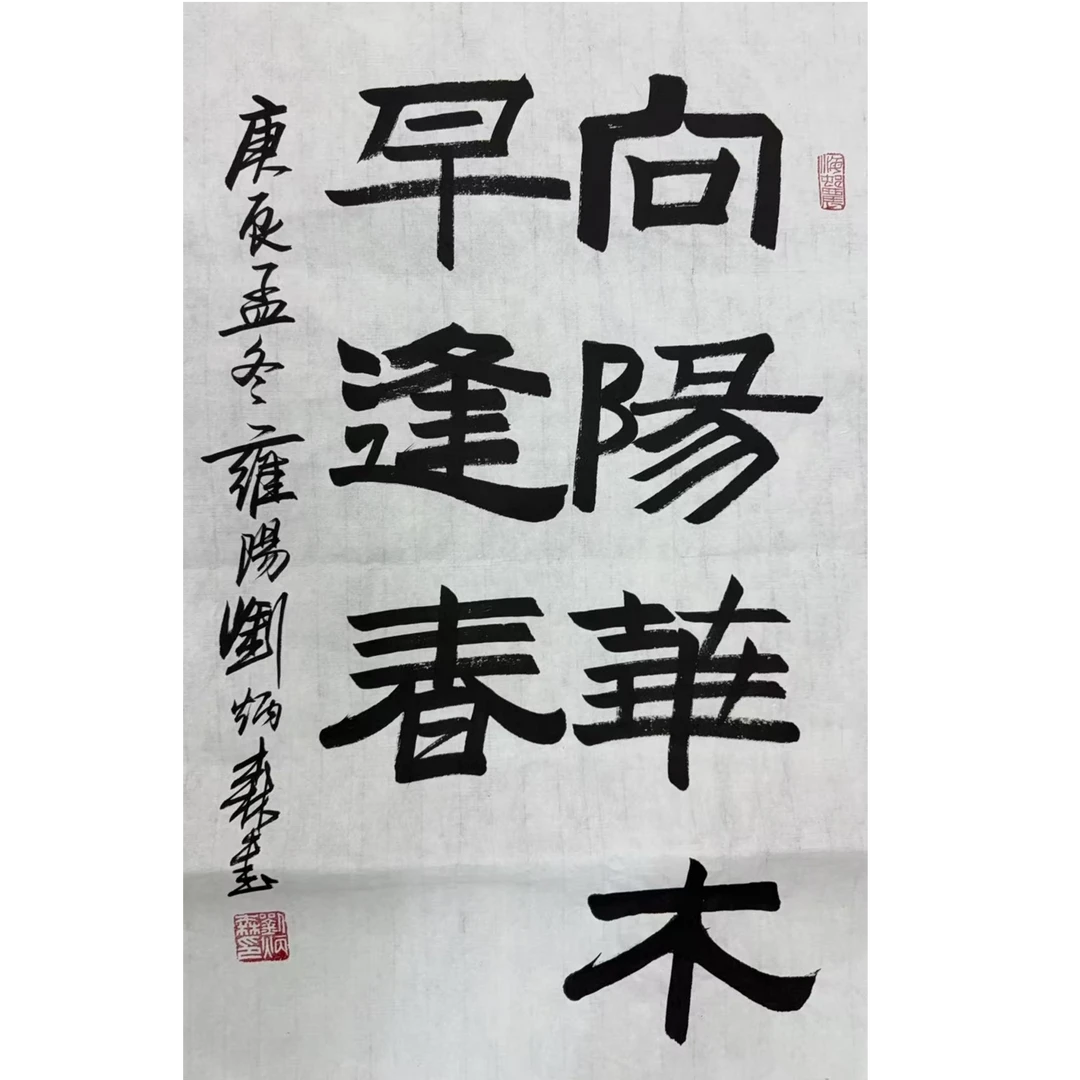 向陽華木
早逢春
庚辰孟冬雍陽劉炳森書
劉炳森印